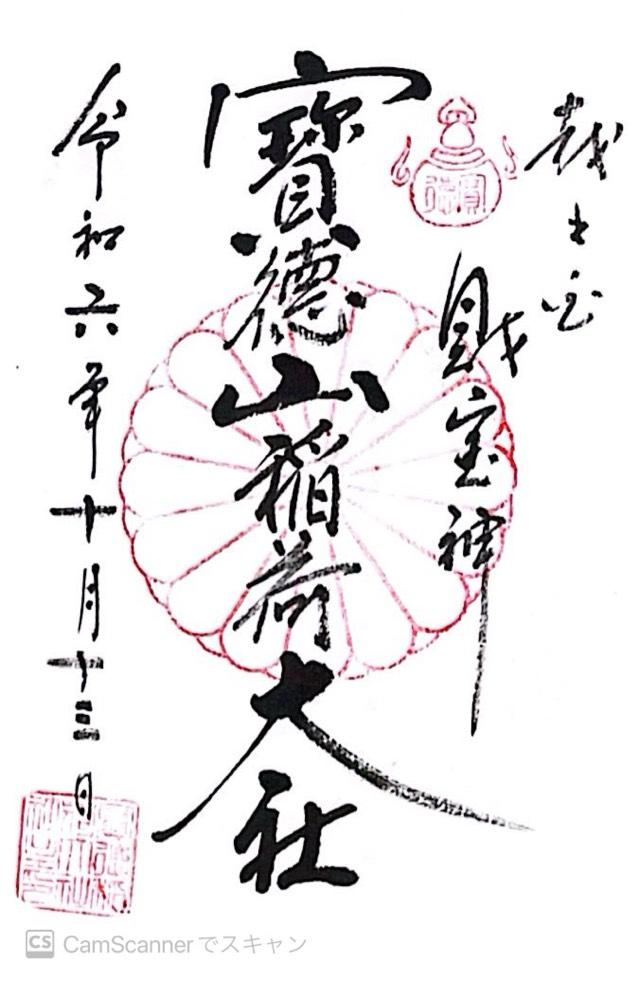 財宝神
寶德山稲荷大社
令和六年十月十三日
CS CamScannerでスキャン